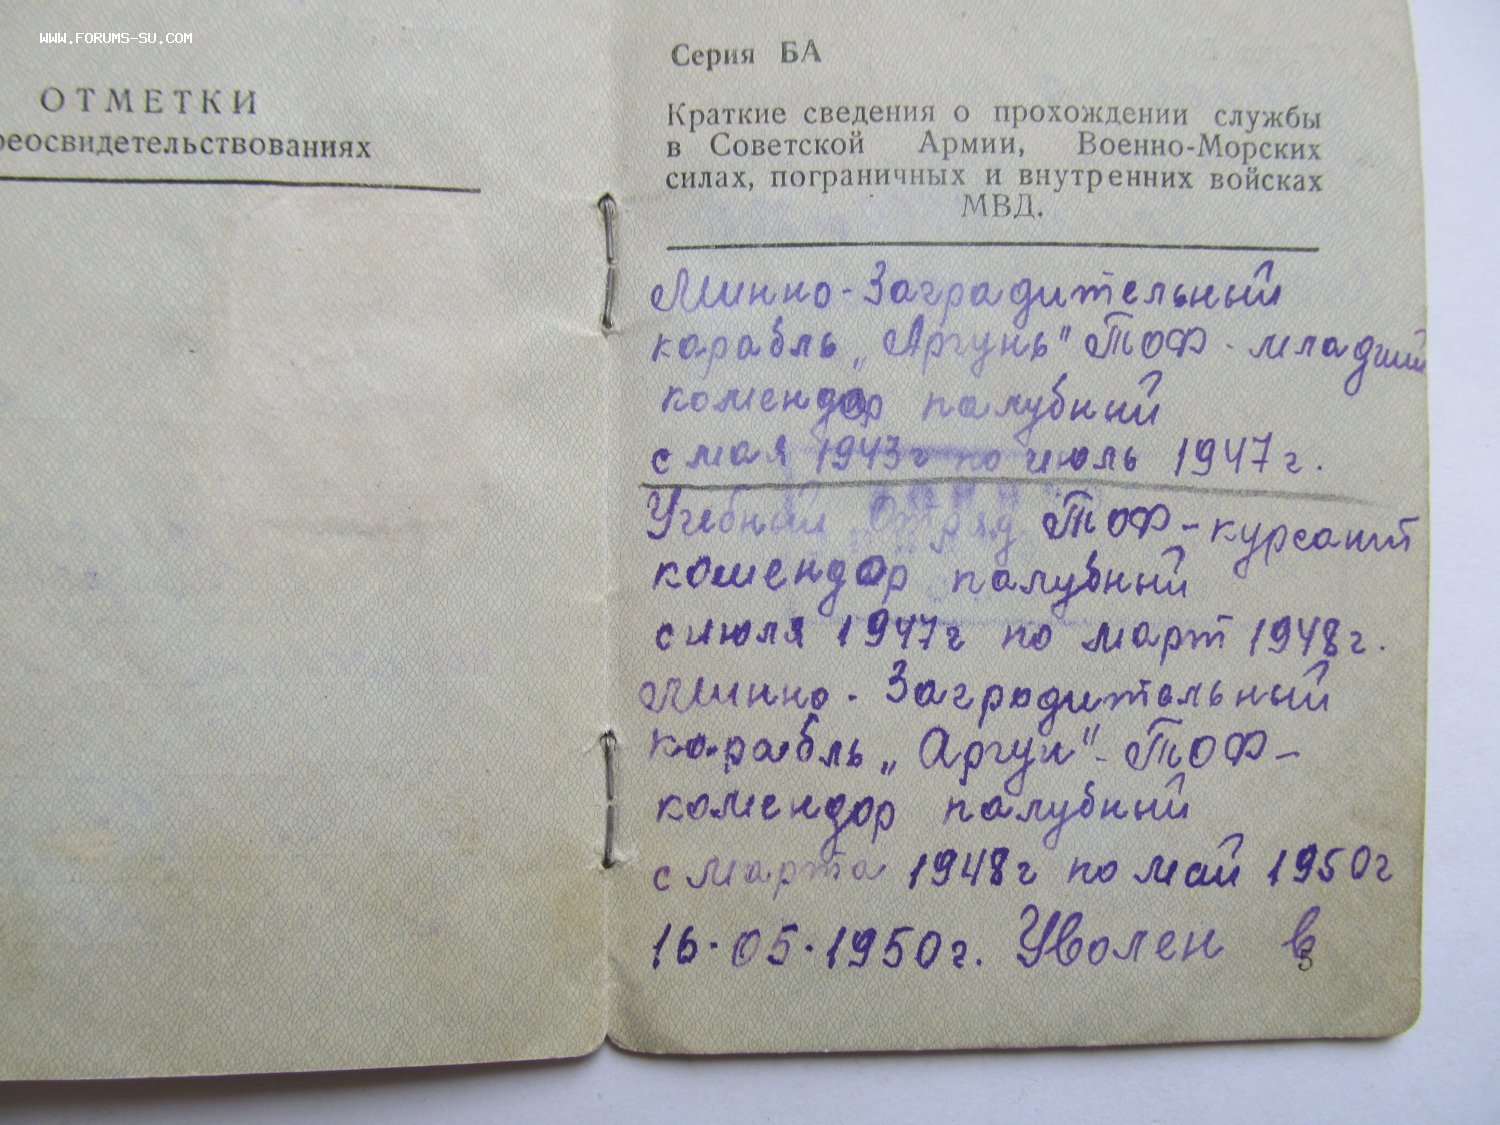 WWW.FORUMS-SU.COM
ОТМЕТКИ
реосвидетельствованиях
Серия БА
Краткие сведения о прохождении службы
в Советской Армии, Военно-Морских
силах, пограничных и внутренних войсках
МВД.
Минно-Заградительный
корабль „Аргунь" ТОФ - младший
комендор палубный
с мая 1943г по июль 1947г.
Учебный Отряд ТОФ - курсант
комендор палубный
с июля 1947г по март 1948г.
Минно-Заградительный
корабль „Аргун" - ТОФ -
комендор палубный
с марта 1948г по май 1950г
16.05.1950г. Уволен в
5